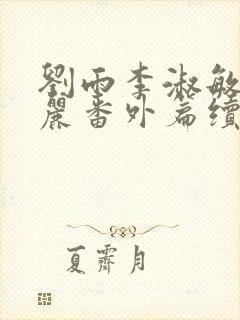 劉雨李淑敏
麗番外扁續
夏霽月